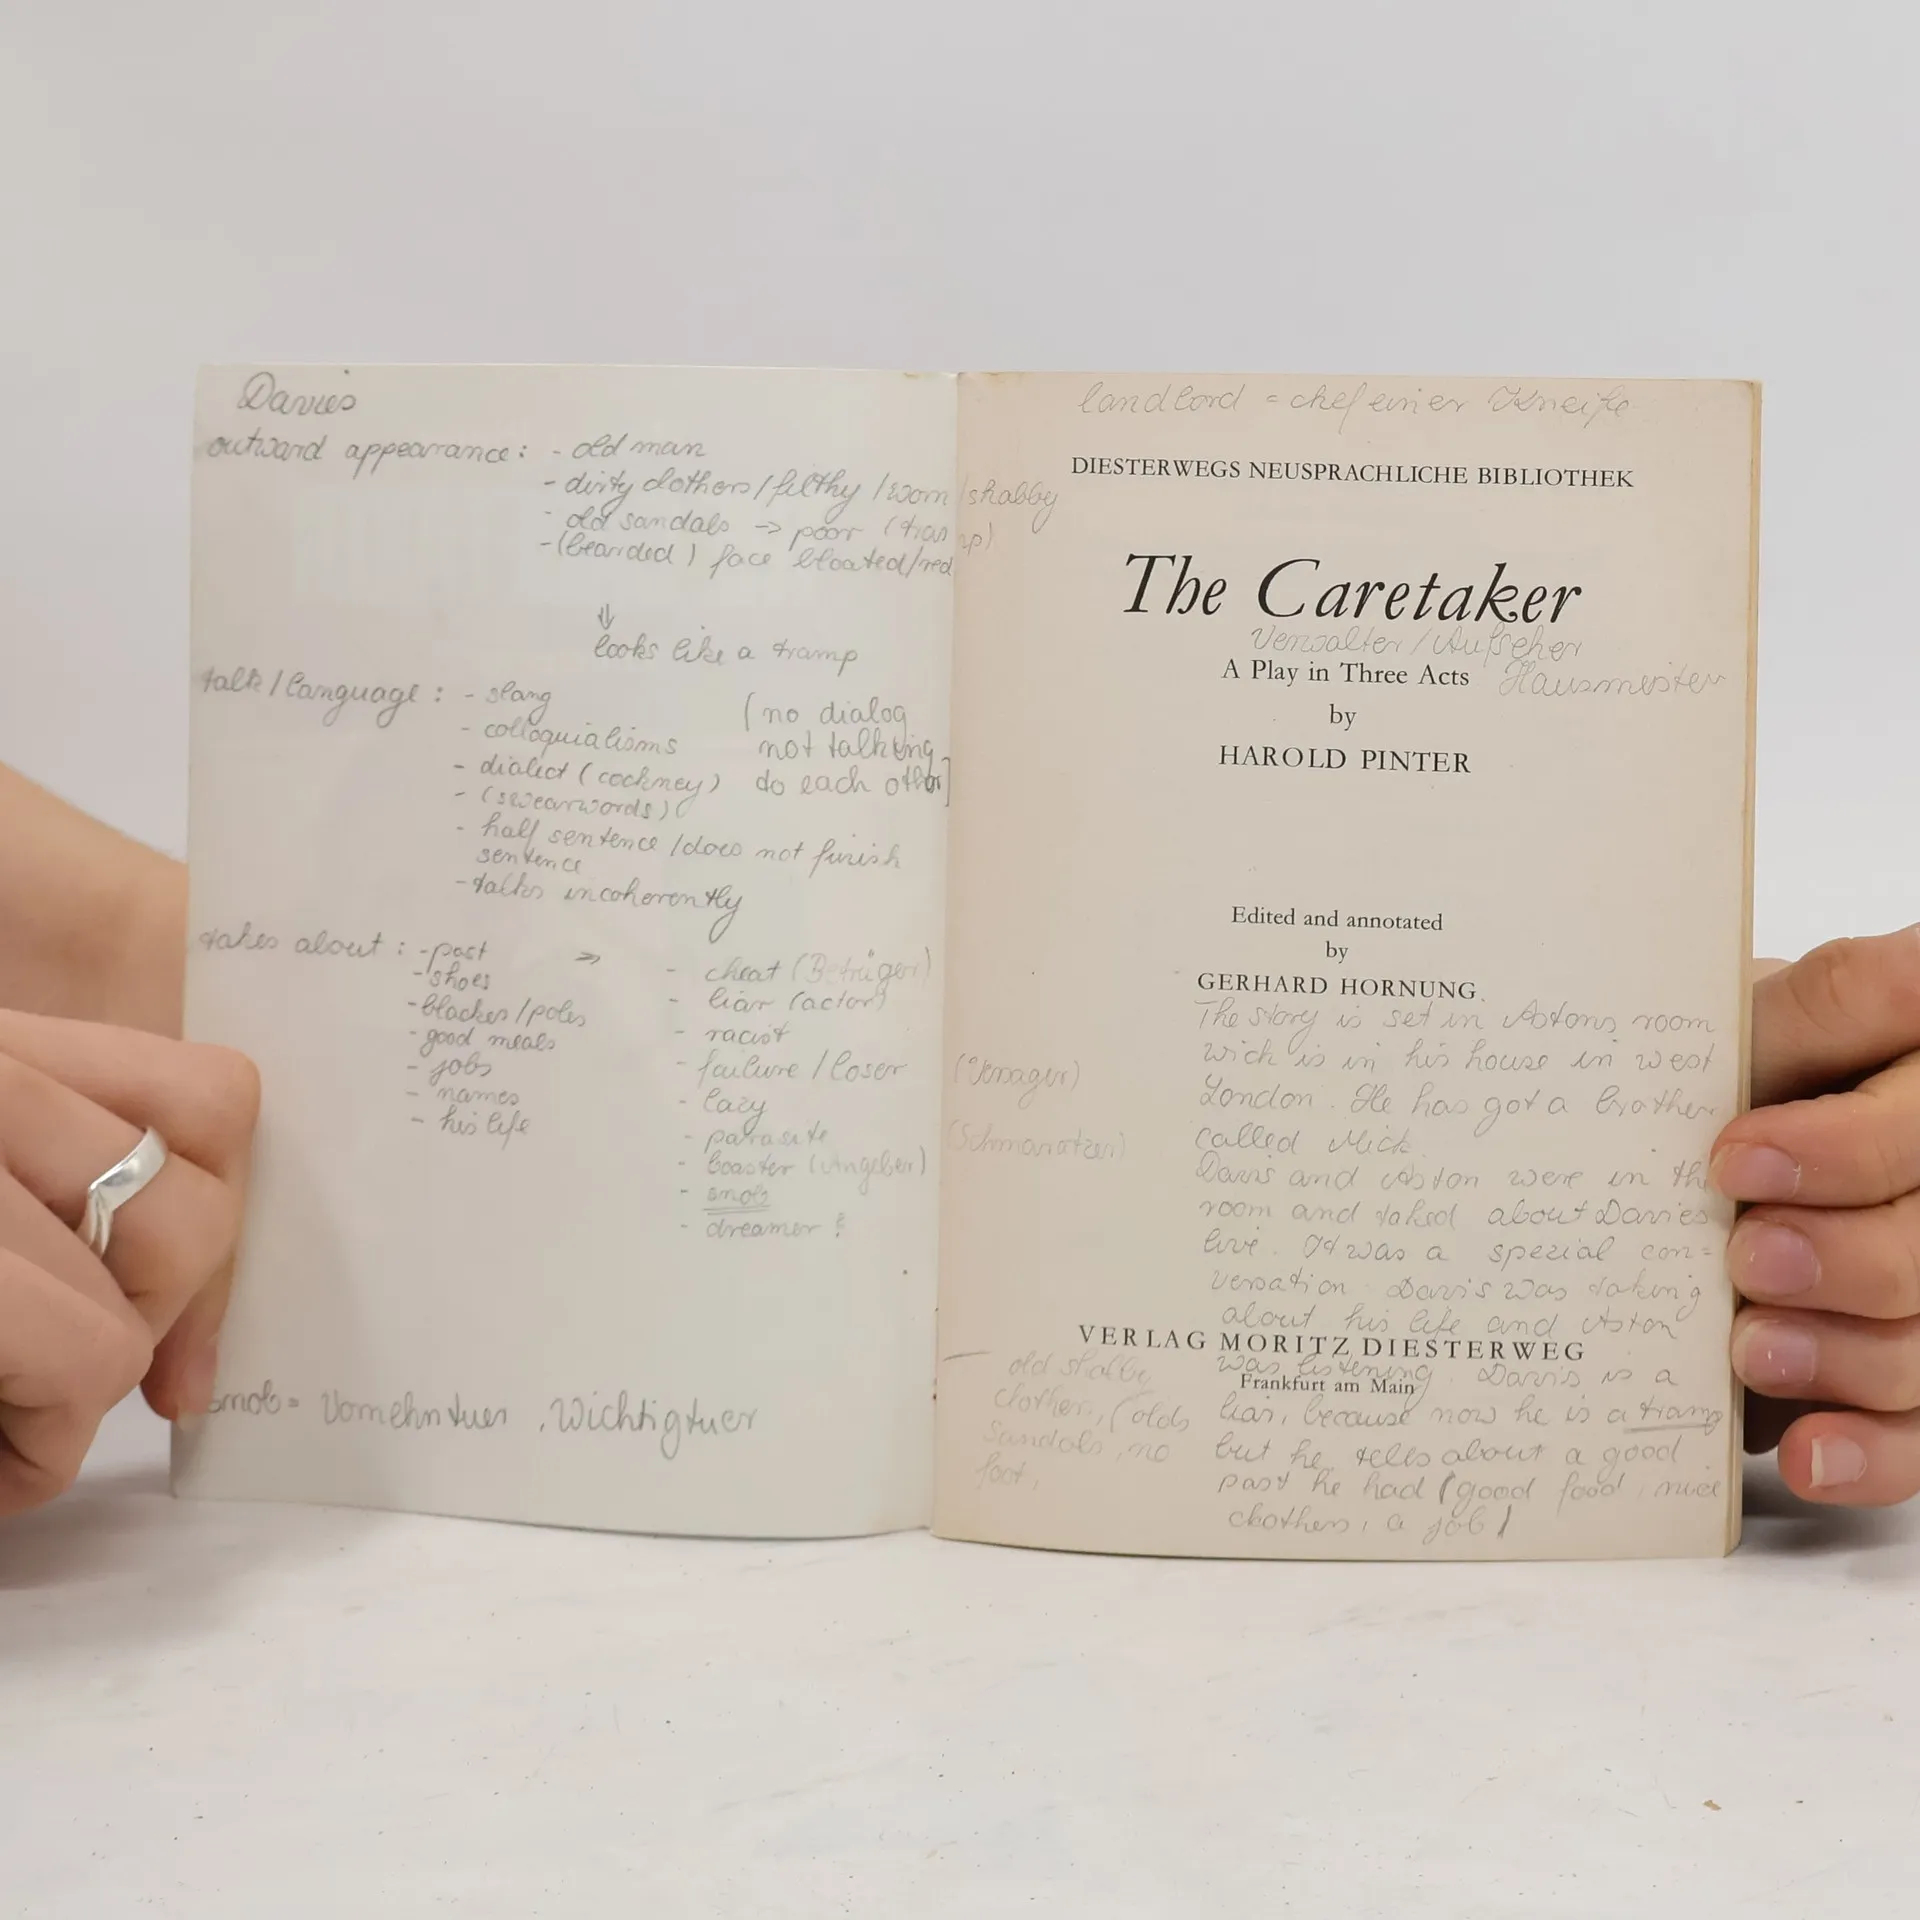 Davies
outward appearance: - old man
- dirty clothers / filthy / worn / shabby
- old sandals -> poor (tramp)
- (bearded) face bloated/red
⇓
looks like a tramp
talk / language: - slang
- colloquialisms
- dialect (cockney)
- (swearwords)
- half sentence / does not finish
sentence
- talks incoherently
(no dialog
not talking
to each other]
takes about: - past
- shoes
- blackes / poles
- good meals
- jobs
- names
- his life
=>
- cheat (Betrüger)
- liar (actor)
- racist
- failure / loser (Versager)
- lazy
- parasite (Schmarotzer)
- boaster (Angeber)
- snob
- dreamer ?
snob = Vornehmtuer, Wichtigtuer
landlord = chef einer Kneipe
DIESTERWEGS NEUSPRACHLICHE BIBLIOTHEK
The Caretaker
Verwalter / Aufseher
A Play in Three Acts Hausmeister
by
HAROLD PINTER
Edited and annotated
by
GERHARD HORNUNG
The story is set in Astons room
wich is in his house in west
London. He has got a brother
called Mick.
Davis and Aston were in the
room and taked about Davies
live. It was a spezial con=
versation. Davis was taking
about his life and Aston
VERLAG MORITZ DIESTERWEG
was listening. Davis is a
Frankfurt am Main
liar, because now he is a tramp
but he tells about a good
past he had (good food, nice
clothers, a job)
old shabby
clothers, (olds
Sandals, no
foot,